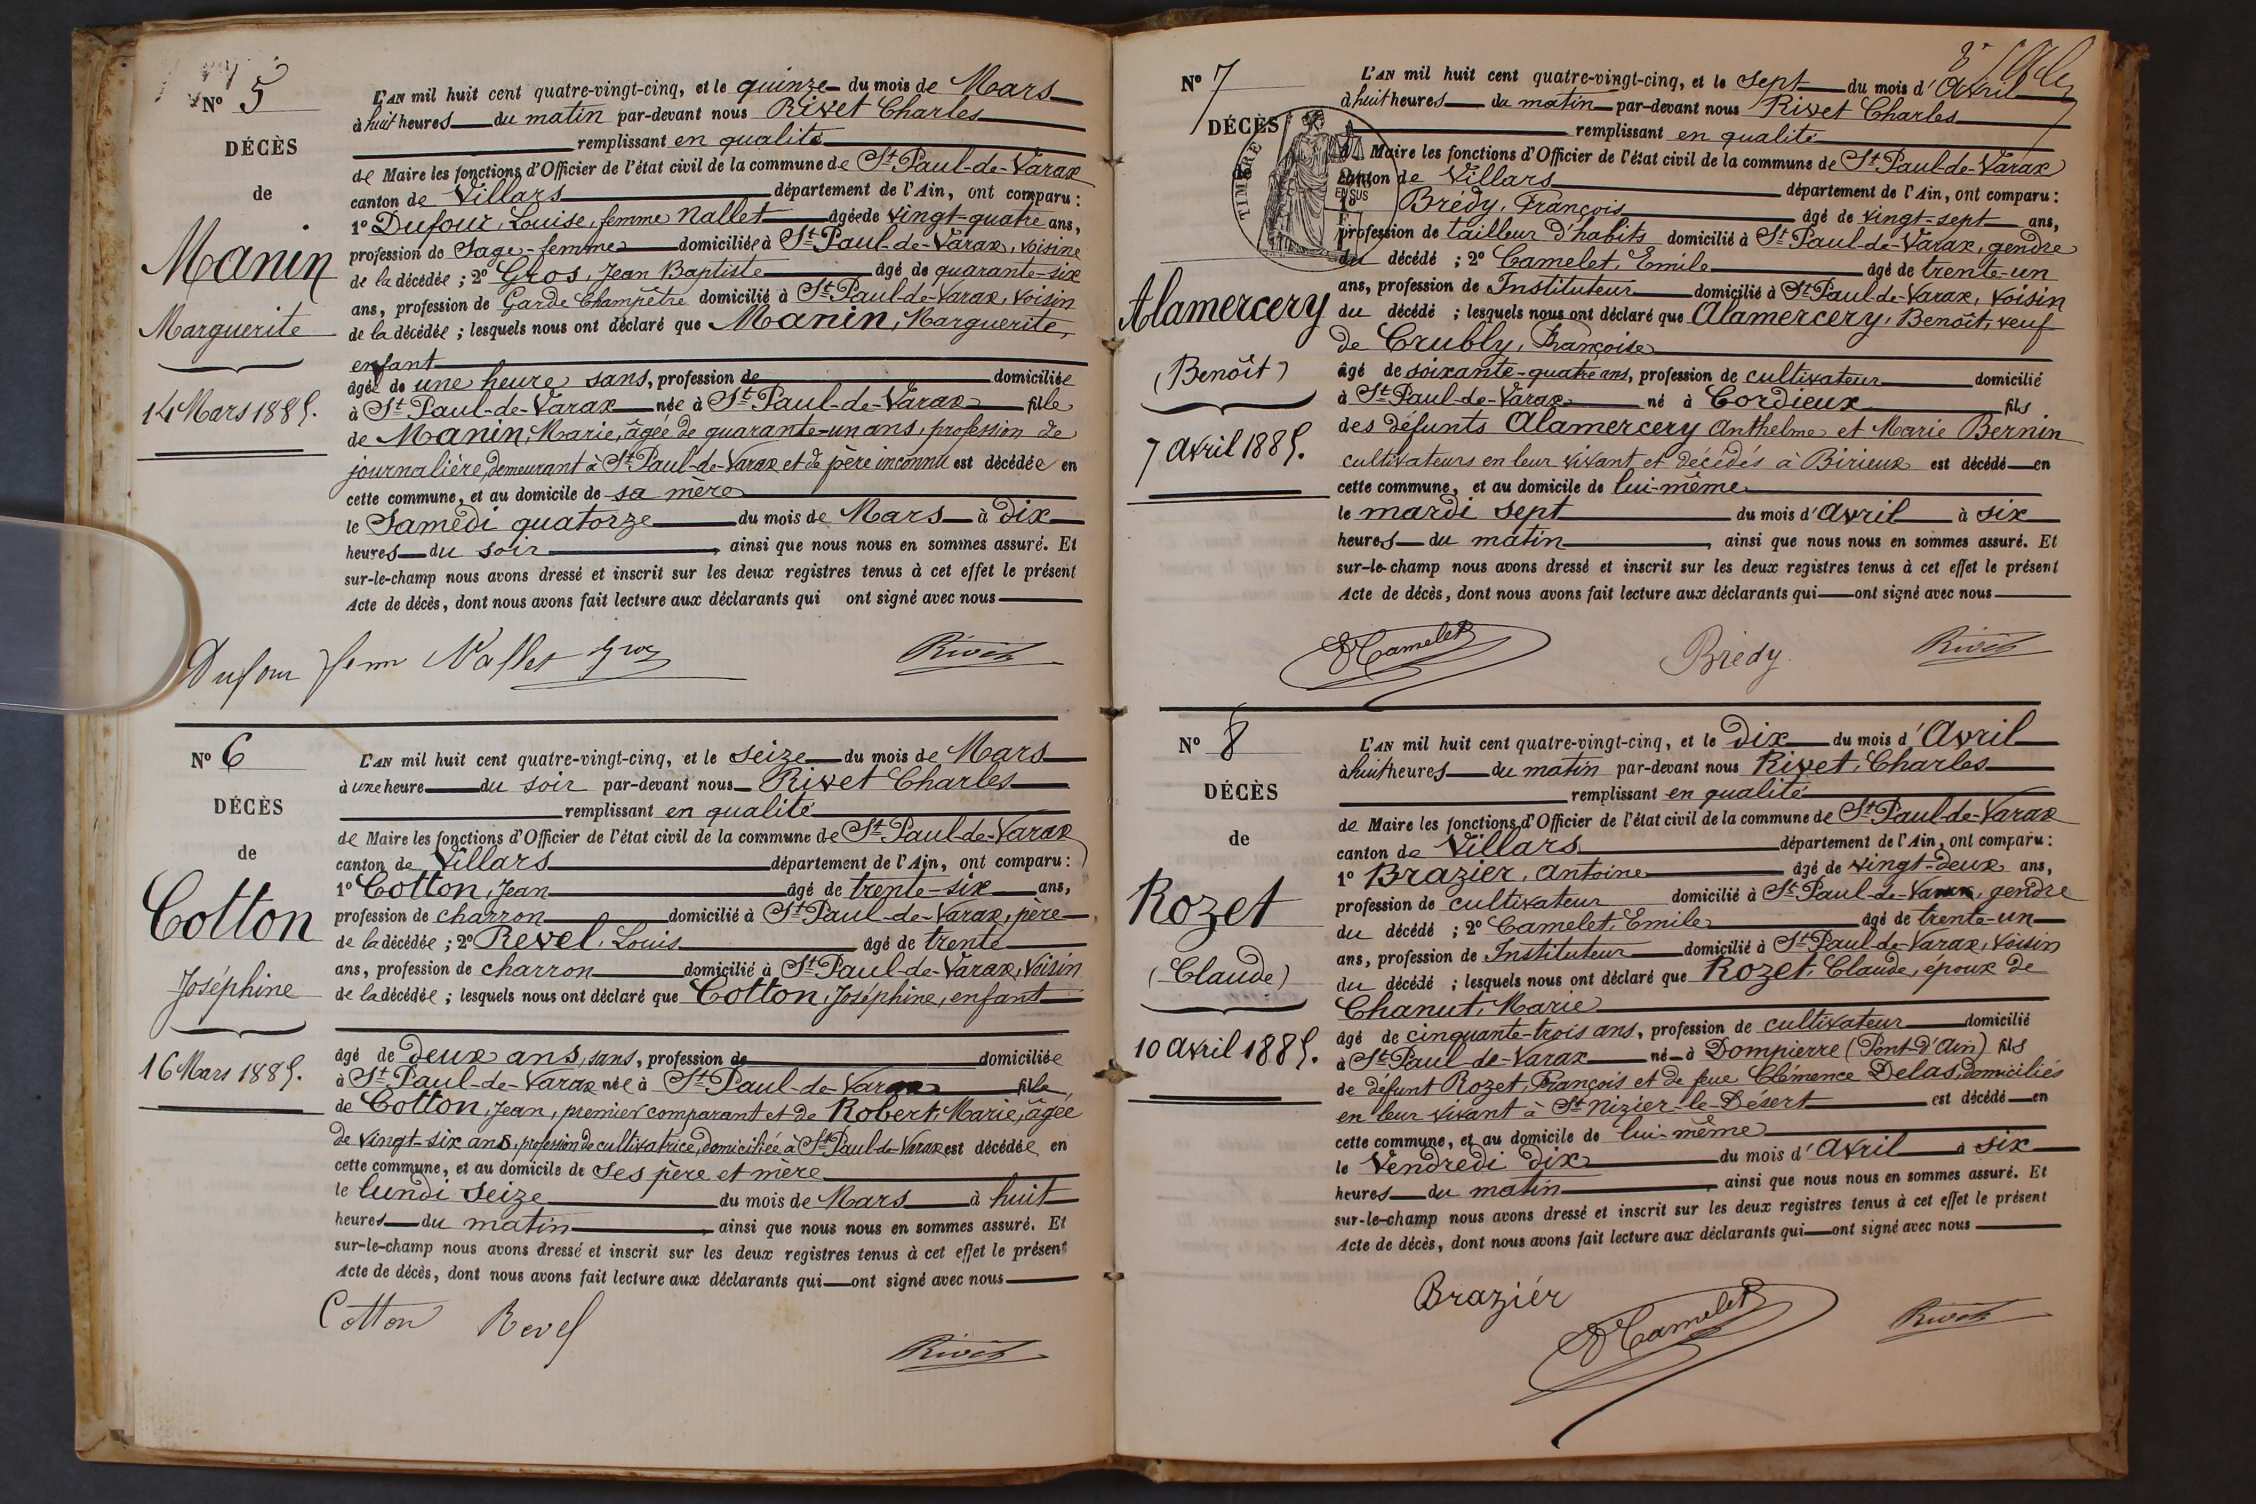 Nº 5
DÉCÈS
de
Manin
Marguerite
14 Mars 1885.
L'AN mil huit cent quatre-vingt-cinq, et le quinze du mois de Mars
à huit heures du matin par-devant nous Rivet Charles
remplissant en qualité
de Maire les fonctions d'Officier de l'état civil de la commune de St Paul-de-Varax
canton de Villars département de l'Ain, ont comparu :
1º Dufour, Louise, femme Nallet âgée de vingt-quatre ans,
profession de Sage-femme domiciliée à St Paul-de-Varax, voisine
de la décédée ; 2º Gros, Jean Baptiste âgé de quarante-six
ans, profession de Garde Champêtre domicilié à St Paul-de-Varax, voisin
de la décédée ; lesquels nous ont déclaré que Manin, Marguerite,
enfant
âgée de une heure sans, profession de domiciliée
à St Paul-de-Varax née à St Paul-de-Varax fille
de Manin, Marie, âgée de quarante-un ans, profession de
journalière, demeurant à St Paul-de-Varax et de père inconnu est décédée en
cette commune, et au domicile de sa mère
le Samedi quatorze du mois de Mars à dix
heures du soir, ainsi que nous nous en sommes assuré. Et
sur-le-champ nous avons dressé et inscrit sur les deux registres tenus à cet effet le présent
Acte de décès, dont nous avons fait lecture aux déclarants qui ont signé avec nous
Dufour femm Nallet Gros Rivet
Nº 6
DÉCÈS
de
Cotton
Joséphine
16 Mars 1885.
L'AN mil huit cent quatre-vingt-cinq, et le seize du mois de Mars
à une heure du soir par-devant nous Rivet Charles
remplissant en qualité
de Maire les fonctions d'Officier de l'état civil de la commune de St Paul-de-Varax
canton de Villars département de l'Ain, ont comparu :
1º Cotton, Jean âgé de trente-six ans,
profession de charron domicilié à St Paul-de-Varax, père
de la décédée ; 2º Revel, Louis âgé de trente
ans, profession de charron domicilié à St Paul-de-Varax, voisin
de la décédée ; lesquels nous ont déclaré que Cotton, Joséphine, enfant
âgé de deux ans, sans, profession de domiciliée
à St Paul-de-Varax née à St Paul-de-Varax fille
de Cotton, Jean, premier comparant et de Robert, Marie, âgée
de vingt-six ans, profession de cultivatrice, domiciliée à St Paul-de-Varax est décédée en
cette commune, et au domicile de ses père et mère
le lundi seize du mois de Mars à huit
heures du matin, ainsi que nous nous en sommes assuré. Et
sur-le-champ nous avons dressé et inscrit sur les deux registres tenus à cet effet le présent
Acte de décès, dont nous avons fait lecture aux déclarants qui ont signé avec nous
Cotton Revel
Rivet
Nº 7
DÉCÈS
TIMBRE
EN SUS
Alamercery
(Benoît)
7 Avril 1885.
L'AN mil huit cent quatre-vingt-cinq, et le sept du mois d'Avril
à huit heures du matin par-devant nous Rivet Charles
remplissant en qualité
Maire les fonctions d'Officier de l'état civil de la commune de St Paul-de-Varax
canton de Villars département de l'Ain, ont comparu :
Brédy, François âgé de vingt-sept ans,
profession de tailleur d'habits domicilié à St Paul-de-Varax, gendre
du décédé ; 2º Camelet, Emile âgé de trente-un
ans, profession de Instituteur domicilié à St Paul-de-Varax, voisin
du décédé ; lesquels nous ont déclaré que Alamercery, Benoît, veuf
de Crubly, Françoise
âgé de soixante-quatre ans, profession de cultivateur domicilié
à St Paul-de-Varax né à Cordieux fils
des défunts Alamercery Anthelme et Marie Bernin
cultivateurs en leur vivant et décédés à Birieux est décédé en
cette commune, et au domicile de lui-même
le mardi sept du mois d'Avril à six
heures du matin, ainsi que nous nous en sommes assuré. Et
sur-le-champ nous avons dressé et inscrit sur les deux registres tenus à cet effet le présent
Acte de décès, dont nous avons fait lecture aux déclarants qui ont signé avec nous
ECamelet Brédy Rivet
Nº 8
DÉCÈS
de
Rozet
(Claude)
10 Avril 1885.
L'AN mil huit cent quatre-vingt-cinq, et le Dix du mois d'Avril
à huit heures du matin par-devant nous Rivet, Charles
remplissant en qualité
de Maire les fonctions d'Officier de l'état civil de la commune de St Paul-de-Varax
canton de Villars département de l'Ain, ont comparu :
1º Brazier, Antoine âgé de vingt-deux ans,
profession de cultivateur domicilié à St Paul-de-Varax, gendre
du décédé ; 2º Camelet, Emile âgé de trente-un
ans, profession de Instituteur domicilié à St Paul-de-Varax, voisin
du décédé ; lesquels nous ont déclaré que Rozet, Claude, époux de
Chanut, Marie
âgé de cinquante-trois ans, profession de cultivateur domicilié
à St Paul-de-Varax né à Dompierre (Pont-d'Ain) fils
de défunt Rozet, François et de feue Clémence Delas, domiciliés
en leur vivant à St Nizier-le-Désert est décédé en
cette commune, et au domicile de lui-même
le Vendredi dix du mois d'Avril à six
heures du matin, ainsi que nous nous en sommes assuré. Et
sur-le-champ nous avons dressé et inscrit sur les deux registres tenus à cet effet le présent
Acte de décès, dont nous avons fait lecture aux déclarants qui ont signé avec nous
Braziér
ECamelet Rivet